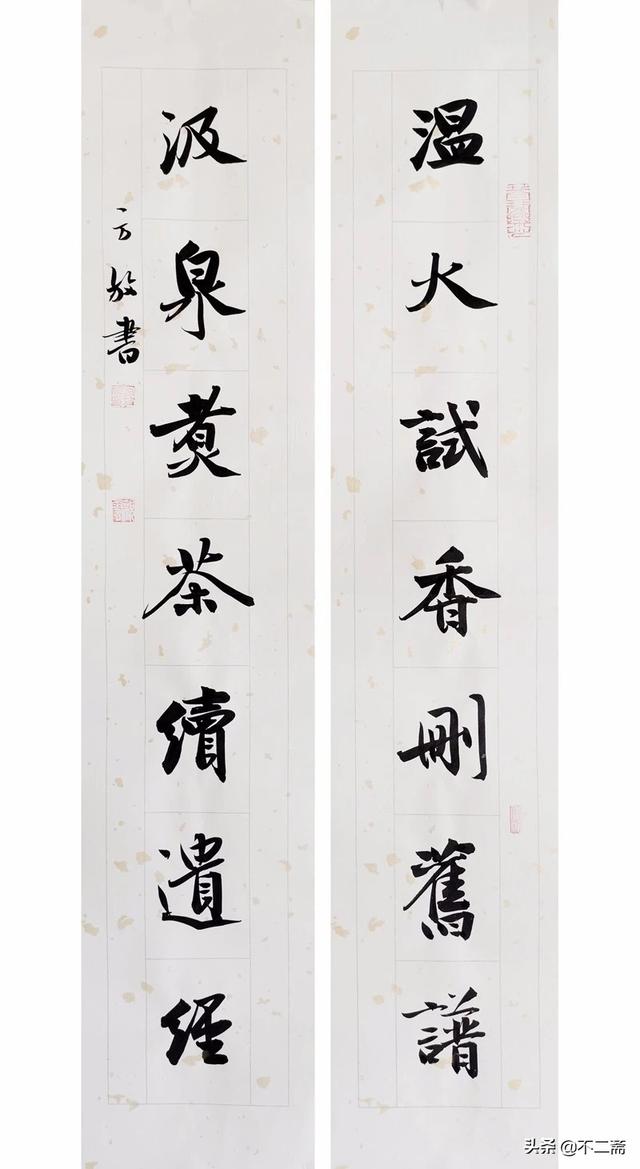 温火試香刪舊譜
汲泉煑茶續遺經
方放書
头条 @不二斋